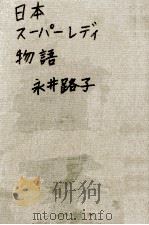 日本
スーパーレディ
物語
永井路子
mtoou.info